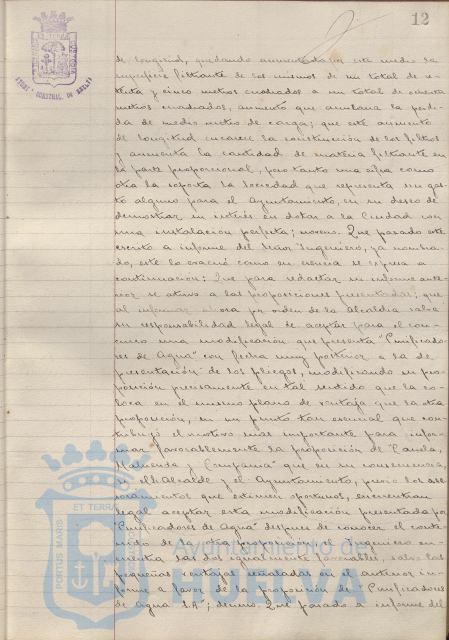 12
de longitud, quedando aumentada por este medio la
superficie filtrante de los mismos de un total de
y cinco metros cuadrados a un total de
metros cuadrados, aumento que la
da de medio metro de carga; que este aumento
de longitud encarece la construcción de los filtros
y aumenta la cantidad de materia filtrante en
la parte proporcional, pero tanto una cifra como
otra la soporta la Sociedad sin que represente
alguno para el Ayuntamiento, en su deseo de
demostrar su interés en dotar a la Ciudad con
una instalación perfecta; noveno. Que pasado este
escrito a informe del Señor Ingeniero, ya nombra-
do, este lo evacuó como en esencia se expresa a
continuación: Que para redactar su informe ante-
rior se atuvo a las proposiciones presentadas; que
al informar ahora por orden de la Alcaldía salva
su responsabilidad legal de aceptar para el con-
curso una modificación que presenta "Purificado-
res de Agua" con fecha muy posterior a la de
presentación de los pliegos, modificando su pro-
posición precisamente en tal sentido que la co-
loca en el mismo plano de ventaja que la otra
proposición, en un punto tan esencial que con-
tribuyó el motivo más importante para infor-
mar favorablemente la proposición de
y Compañía" que en su consecuencia,
si el Alcalde y el Ayuntamiento, previo los ase-
soramientos que estimen oportunos, encuentran
legal aceptar esta modificación presentada por
"Purificadores de Agua" después de conocer el conte-
nido de la otra proposición, el Ingeniero en-
cuentra las dos igualmente favorables, salvo las
pequeñas ventajas señaladas en el anterior in-
forme a favor de la proposición de "Purificadores
de Agua S.A"; décimo. Que pasado a informe del
ET TERRAE
PORTUS MARIS
Ayuntamiento de
HUELVA